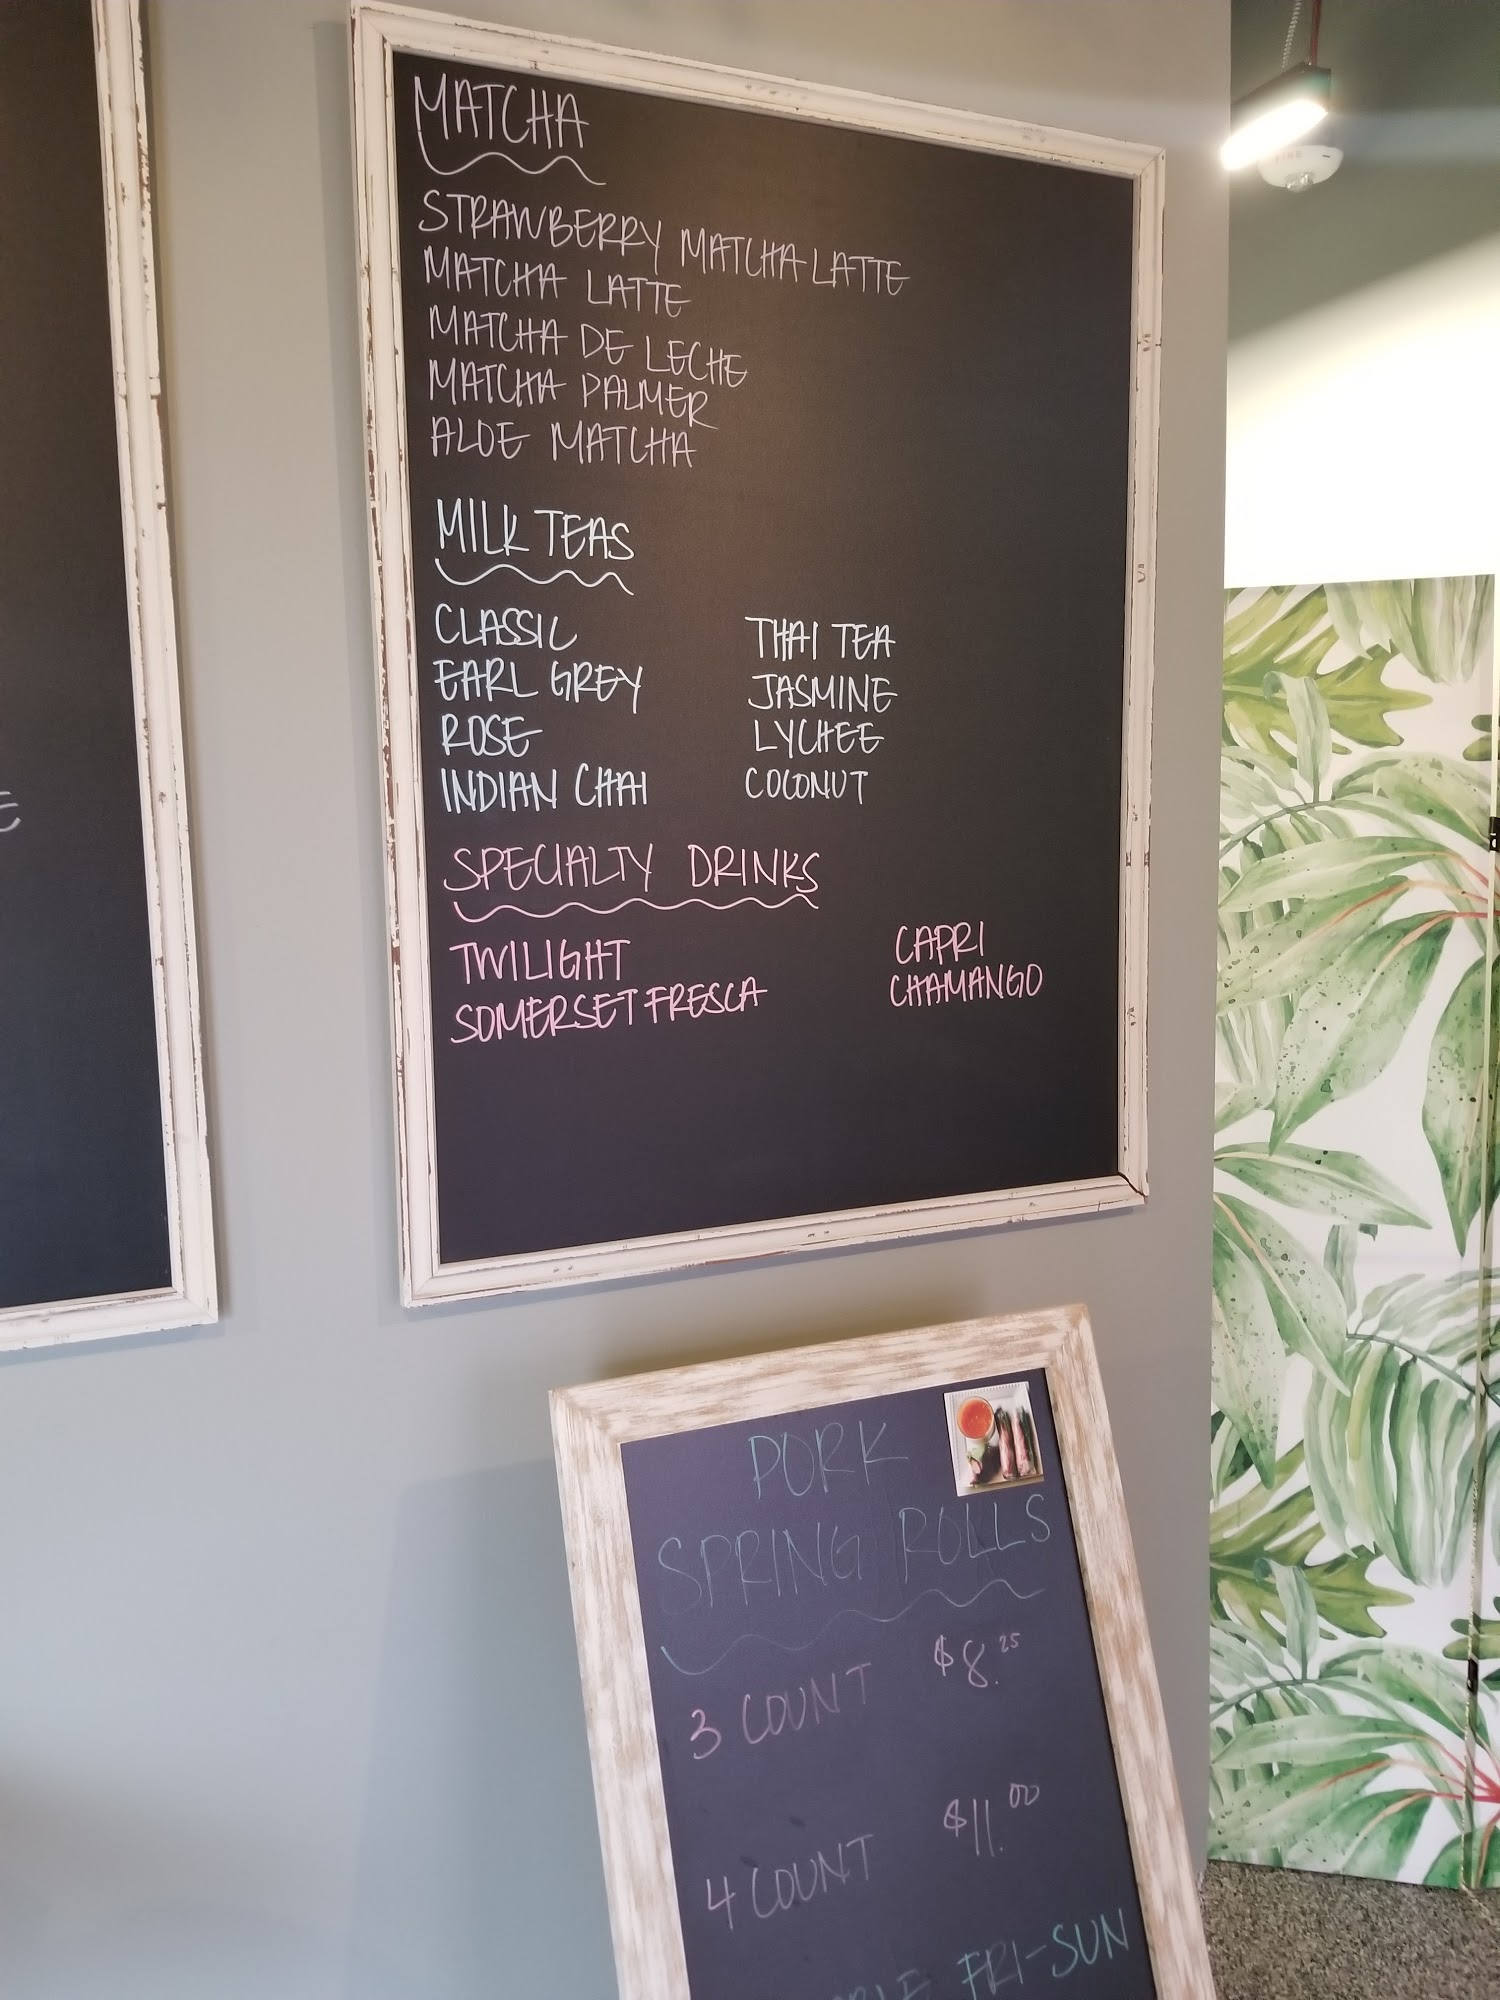 MATCHA
STRAWBERRY MATCHA LATTE
MATCHA LATTE
MATCHA DE LECHE
MATCHA PALMER
ALOE MATCHA
MILK TEAS
CLASSIC
EARL GREY
ROSE
INDIAN CHAI
THAI TEA
JASMINE
LYCHEE
COCONUT
SPECIALTY DRINKS
TWILIGHT
SOMERSET FRESCA
CAPRI
CHAMANGO
PORK
SPRING ROLLS
3 COUNT $8.25
4 COUNT $11.00
FRI-SUN
FIRE